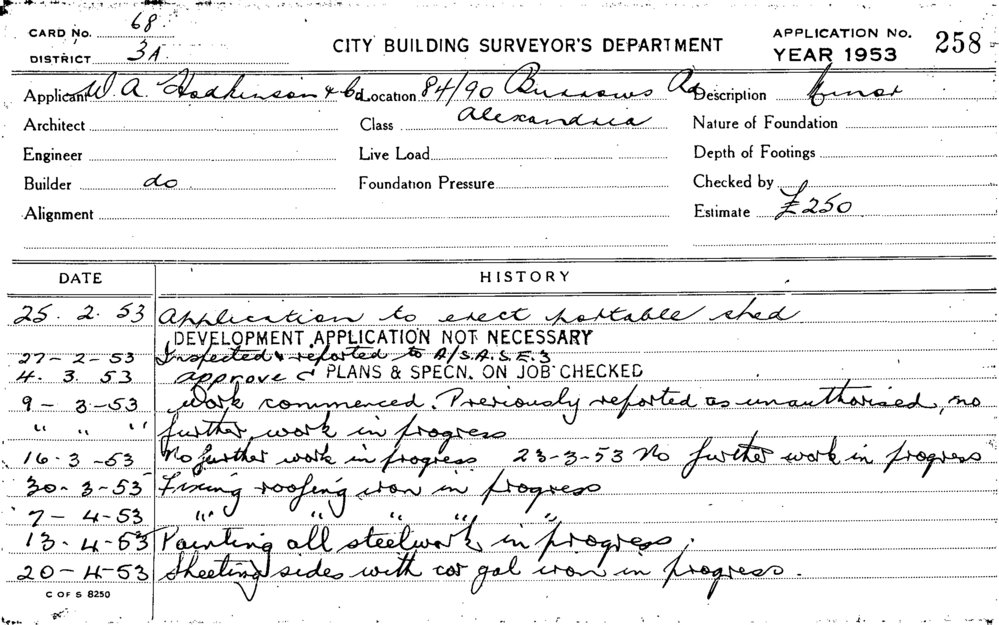 CARD No. 68
DISTRICT 3A
CITY BUILDING SURVEYOR'S DEPARTMENT
APPLICATION No. 258
YEAR 1953
Applicant W. A. Hodkinson & Co Location 84/90 Burrows Rd Description Minor
Architect Class Alexandria Nature of Foundation
Engineer Live Load Depth of Footings
Builder do Foundation Pressure Checked by
Alignment Estimate £250
DATE HISTORY
25. 2. 53 Application to erect portable shed
DEVELOPMENT APPLICATION NOT NECESSARY
27-2-53 Inspected & reported to A/S.A.S.E.3
4. 3. 53 approved PLANS & SPECN. ON JOB CHECKED
9-3-53 Work commenced. Previously reported as unauthorised, no
" " " further work in progress
16-3-53 No further work in progress 23-3-53 No further work in progress
30-3-53 Fixing roofing iron in progress
7-4-53 " " " " "
13-4-53 Painting all steelwork in progress.
20-4-53 Sheeting sides with cor gal iron in progress.
C OF S 8250